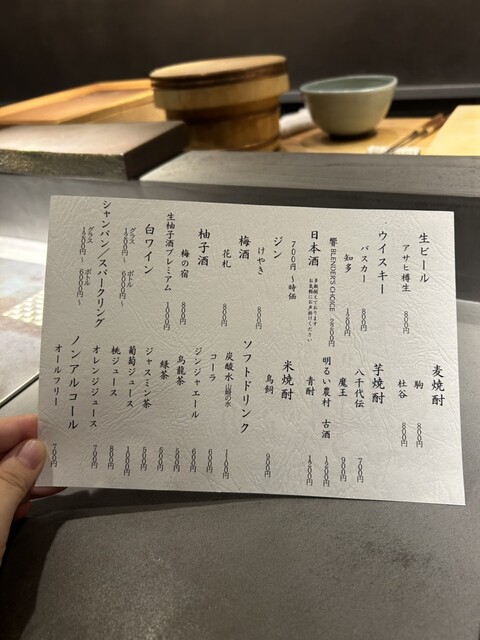 生ビール
アサヒ樽生 800円
ウイスキー
バスカー 800円
知多 1200円
響 BLENDER'S CHOICE 2800円
日本酒
700円〜時価
多数揃えております
お気軽にお声掛けください
ジン
けやき 800円
梅酒
花札 800円
柚子酒
梅の宿 800円
生柚子酒プレミアム 1000円
白ワイン
グラス 1200円〜 ボトル 6000円〜
シャンパン／スパークリング
グラス 1500円〜 ボトル 8000円〜
麦焼酎
駒 800円
杜谷 800円
芋焼酎
八千代伝 700円
魔王 900円
明るい農村 古酒 1200円
青酎 1800円
米焼酎
鳥飼 900円
ソフトドリンク
炭酸水 山崎の水 1100円
コーラ 600円
ジンジャエール 600円
烏龍茶 500円
緑茶 500円
ジャスミン茶 500円
葡萄ジュース 1000円
桃ジュース 800円
オレンジジュース 700円
ノンアルコール
オールフリー 700円